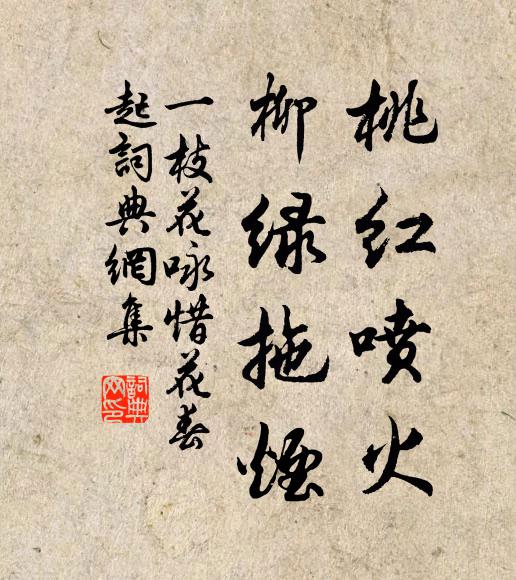 桃红喷火
柳绿拖烟
一枝花咏惜花春
起詞典網集
詞典
网印